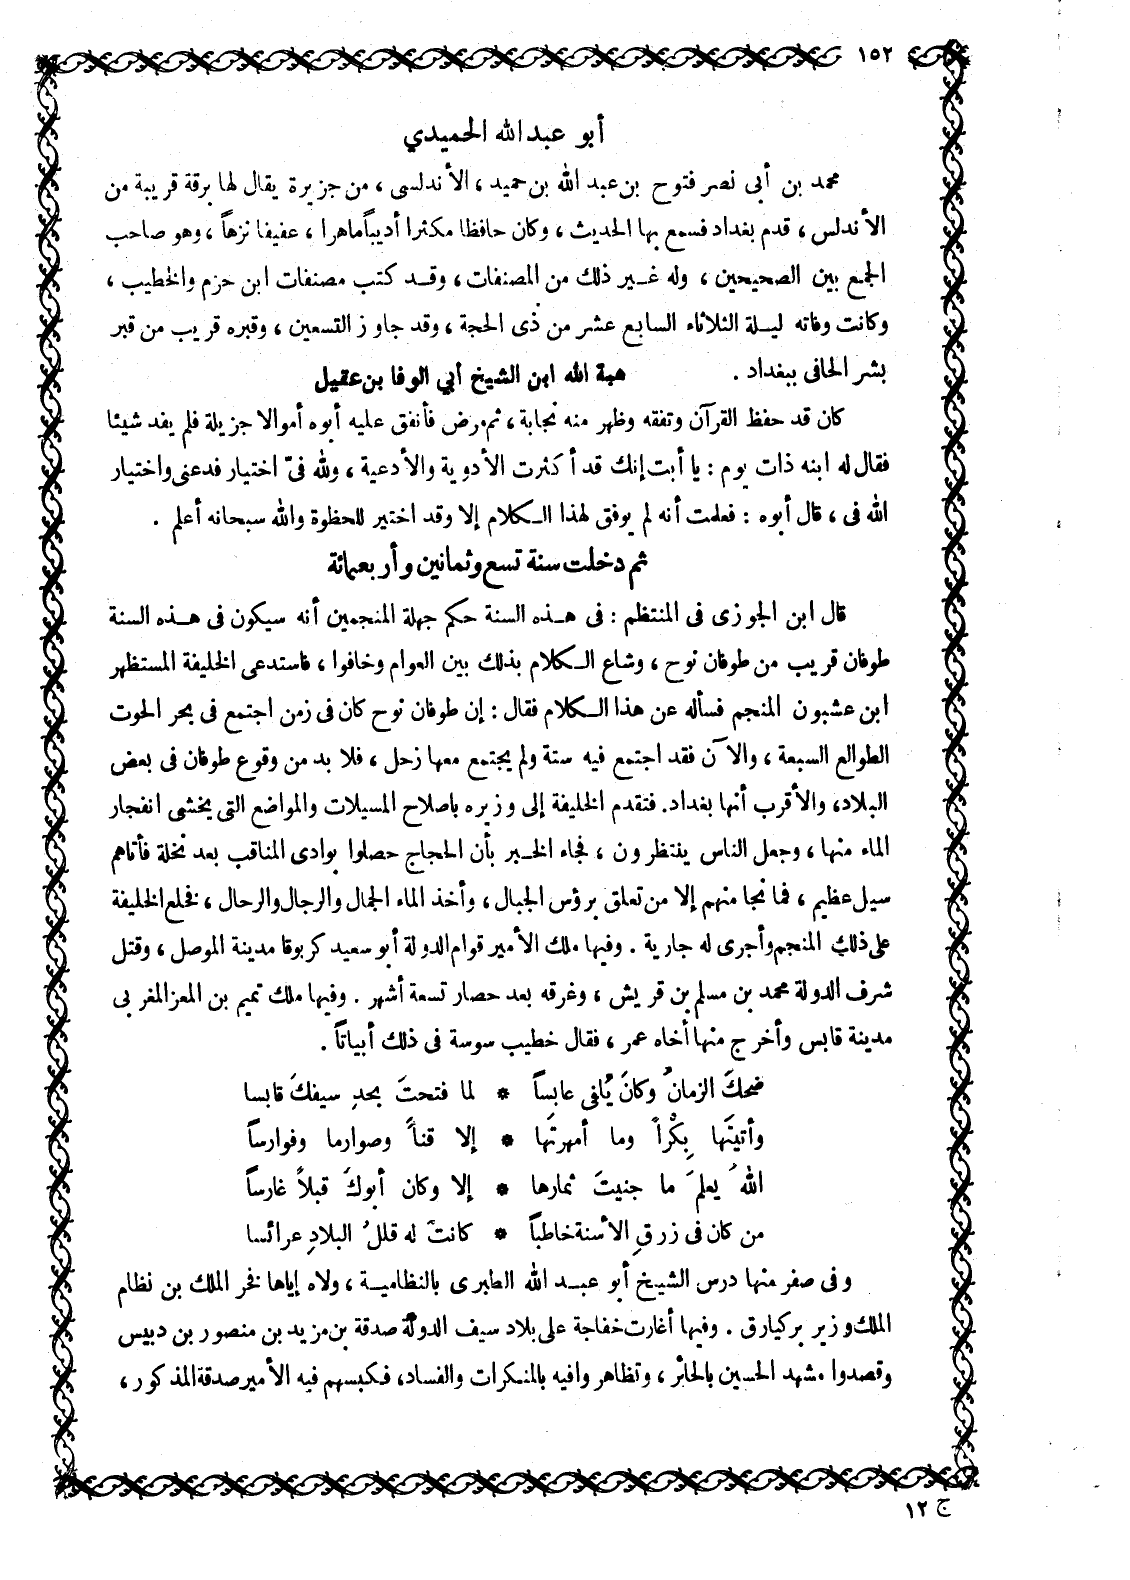 ١٥٢
أبو عبد الله الحميدي
محمد بن أبى نصر فتوح بن عبد الله بن حميد ، الأندلسى ، من جزيرة يقال لها برقة قريبة من
الأندلس ، قدم بغداد فسمع بها الحديث ، وكان حافظا مكثرا أديباً ماهرا ، عفيفا نزهاً ، وهو صاحب
الجمع بين الصحيحين ، وله غير ذلك من المصنفات ، وقد كتب مصنفات ابن حزم والخطيب ،
وكانت وفاته ليلة الثلاثاء السابع عشر من ذى الحجة ، وقد جاوز التسعين ، وقبره قريب من قبر
بشر الحافى ببغداد . هبة الله ابن الشيخ أبي الوفا بن عقيل
كان قد حفظ القرآن وتفقه وظهر منه نجابة ، ثم مرض فأنفق عليه أبوه أموالا جزيلة فلم يفد شيئا
فقال له ابنه ذات يوم : يا أبت إنك قد أكثرت الأدوية والأدعية ، ولله فىّ اختيار فدعنى واختيار
الله فى ، قال أبوه : فعلمت أنه لم يوفق لهذا الكلام إلا وقد اختير للحظوة والله سبحانه أعلم .
ثم دخلت سنة تسع وثمانين وأربعمائة
قال ابن الجوزى فى المنتظم : فى هذه السنة حكم جهلة المنجمين أنه سيكون فى هذه السنة
طوفان قريب من طوفان نوح ، وشاع الكلام بذلك بين العوام وخافوا ، فاستدعى الخليفة المستظهر
ابن عشبون المنجم فسأله عن هذا الكلام فقال : إن طوفان نوح كان فى زمن اجتمع فى بحر الحوت
الطوالع السبعة ، والآن فقد اجتمع فيه ستة ولم يجتمع معها زحل ، فلا بد من وقوع طوفان فى بعض
البلاد، والأقرب أنها بغداد. فتقدم الخليفة إلى وزيره باصلاح المسيلات والمواضع التى يخشى انفجار
الماء منها ، وجعل الناس ينتظرون ، فجاء الخبر بأن الحجاج حصلوا بوادى المناقب بعد نخلة فأتاهم
سيل عظيم ، فما نجا منهم إلا من تعلق برؤس الجبال ، وأخذ الماء الجمال والرجال والرحال ، فخلع الخليفة
على ذلك المنجم وأجرى له جارية . وفيها ملك الأمير قوام الدولة أبو سعيد كربوقا مدينة الموصل ، وقتل
شرف الدولة محمد بن مسلم بن قريش ، وغرقه بعد حصار تسعة أشهر . وفيها ملك تميم بن المعز المغربى
مدينة قابس وأخرج منها أخاه عمر ، فقال خطيب سوسة فى ذلك أبياتاً .
ضحكَ الزمانُ وكانَ يُلفى عابساً * لما فتحتَ بحدِ سيفكَ قابسا
وأتيتَها بِكْراً وما أمهرتَها * إلا قناً وصوارما وفوارساً
اللهُ يعلمَ ما جنيتَ ثمارها * إلا وكان أبوكَ قبلاً غارساً
من كان فى زرقِ الأسنة خاطباً * كانتْ له قللُ البلادِ عرائسا
وفى صفر منها درس الشيخ أبو عبد الله الطبرى بالنظامية ، ولاه إياها فخر الملك بن نظام
الملك وزير بركيارق . وفيها أغارت خفاجة على بلاد سيف الدولة صدقة بن مزيد بن منصور بن دبيس
وقصدوا مشهد الحسين بالحائر ، وتظاهروا فيه بالمنكرات والفساد، فكبسهم فيه الأمير صدقة المذكور ،
ج ١٢